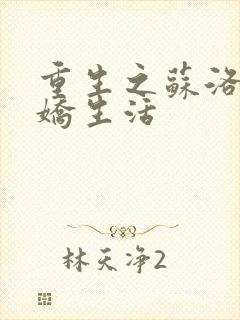 重生之蘇洛
嬌生活
林天净2